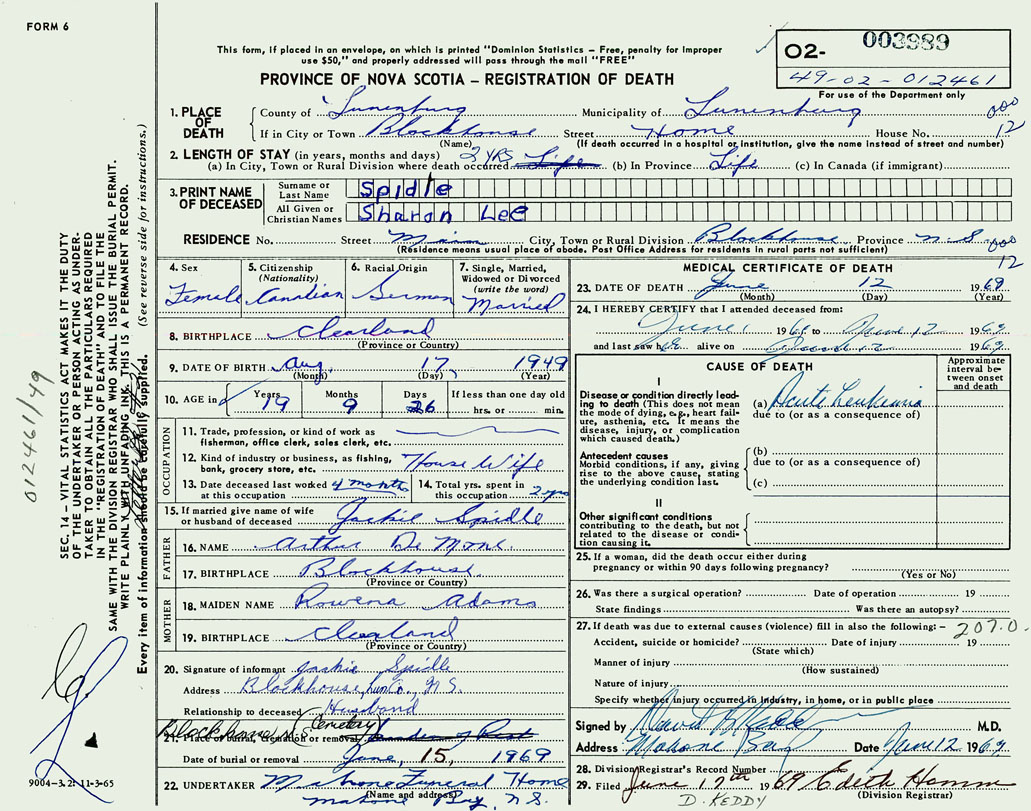 FORM 6
This form, if placed in an envelope, on which is printed "Dominion Statistics – Free, penalty for improper
use $50," and properly addressed will pass through the mail "FREE"
PROVINCE OF NOVA SCOTIA – REGISTRATION OF DEATH
O2- 003989
49-02-012461
For use of the Department only
1. PLACE OF DEATH
County of Lunenburg Municipality of Lunenburg 000
If in City or Town Blockhouse Street Home House No. 12
(Name) (If death occurred in a hospital or institution, give the name instead of street and number)
2. LENGTH OF STAY (in years, months and days) 2 YRS
(a) In City, Town or Rural Division where death occurred Life (b) In Province Life (c) In Canada (if immigrant)
3. PRINT NAME OF DECEASED
Surname or Last Name Spidle
All Given or Christian Names Sharon Lee
RESIDENCE No. Street Main City, Town or Rural Division Blockhouse Province N.S. 000
(Residence means usual place of abode. Post Office Address for residents in rural parts not sufficient) 12
4. Sex
Female
5. Citizenship (Nationality)
Canadian
6. Racial Origin
German
7. Single, Married, Widowed or Divorced (write the word)
Married
8. BIRTHPLACE Clearland
(Province or Country)
9. DATE OF BIRTH Aug. 17 1949
(Month) (Day) (Year)
10. AGE in Years Months Days If less than one day old
19 9 26 hrs. or min.
OCCUPATION
11. Trade, profession, or kind of work as fisherman, office clerk, sales clerk, etc.
12. Kind of industry or business, as fishing, bank, grocery store, etc. House Wife
13. Date deceased last worked at this occupation 4 months
14. Total yrs. spent in this occupation 2 yrs
15. If married give name of wife or husband of deceased Jackie Spidle
FATHER
16. NAME Arthur De Mone
17. BIRTHPLACE Blockhouse
(Province or Country)
MOTHER
18. MAIDEN NAME Rowena Adams
19. BIRTHPLACE Clearland
(Province or Country)
20. Signature of informant Jackie Spidle
Address Blockhouse, Lun Co., N.S.
Relationship to deceased Husband
Blockhouse N.S. (Cemetery)
21. Place of burial, cremation or removal
Date of burial or removal June, 15, 1969
22. UNDERTAKER Mahone Funeral Home
(Name and address) Mahone Bay, N.S.
MEDICAL CERTIFICATE OF DEATH
23. DATE OF DEATH June 12 1969
(Month) (Day) (Year)
24. I HEREBY CERTIFY that I attended deceased from:
June 1 1969 to June 12 1969
and last saw her alive on June 12 1969
CAUSE OF DEATH
Approximate interval between onset and death
I
Disease or condition directly leading to death (This does not mean the mode of dying, e.g., heart failure, asthenia, etc. It means the disease, injury, or complication which caused death.)
(a) Acute Leukemia
due to (or as a consequence of)
Antecedent causes
Morbid conditions, if any, giving rise to the above cause, stating the underlying condition last.
(b)
due to (or as a consequence of)
(c)
II
Other significant conditions
contributing to the death, but not related to the disease or condition causing it.
25. If a woman, did the death occur either during
pregnancy or within 90 days following pregnancy?
(Yes or No)
26. Was there a surgical operation? Date of operation 19
State findings Was there an autopsy?
27. If death was due to external causes (violence) fill in also the following: – 207.0
Accident, suicide or homicide? Date of injury 19
(State which)
Manner of injury
(How sustained)
Nature of injury
Specify whether injury occurred in industry, in home, or in public place
Signed by M.D.
Address Mahone Bay Date June 12 1969
28. Division Registrar's Record Number
29. Filed June 17th 1969 Edith Hamm
D. KEDDY (Division Registrar)
SEC. 14 – VITAL STATISTICS ACT MAKES IT THE DUTY
OF THE UNDERTAKER OR PERSON ACTING AS UNDER-
TAKER TO OBTAIN ALL THE PARTICULARS REQUIRED
IN THE "REGISTRATION OF DEATH" AND TO FILE THE
SAME WITH THE DIVISION REGISTRAR WHO SHALL ISSUE THE BURIAL PERMIT.
WRITE PLAINLY WITH UNFADING INK. THIS IS A PERMANENT RECORD.
Every item of information should be carefully supplied. (See reverse side for instructions.)
012461/49
9004-3.2: 11-3-65